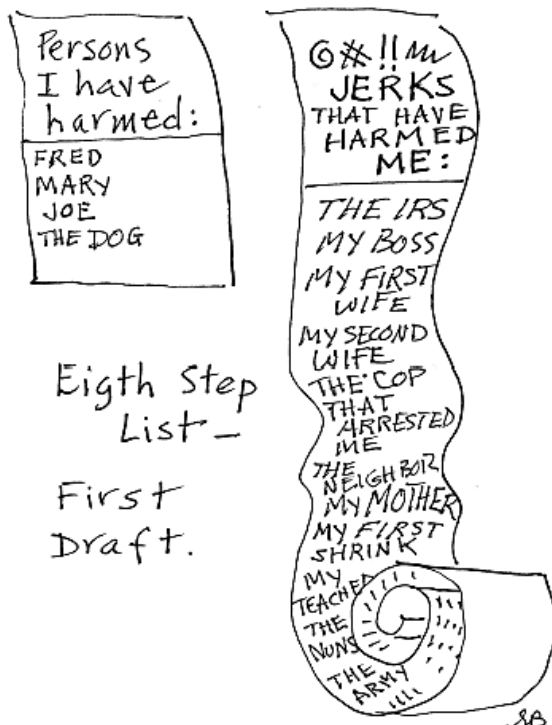 Persons
I have
harmed:
FRED
MARY
JOE
THE DOG
Eigth Step
List –
First
Draft.
@#!!
JERKS
THAT HAVE
HARMED
ME:
THE IRS
MY BOSS
MY FIRST
WIFE
MY SECOND
WIFE
THE COP
THAT
ARRESTED
ME
THE
NEIGHBOR
MY MOTHER
MY FIRST
SHRINK
MY
TEACHER
THE
NUNS
THE
ARMY